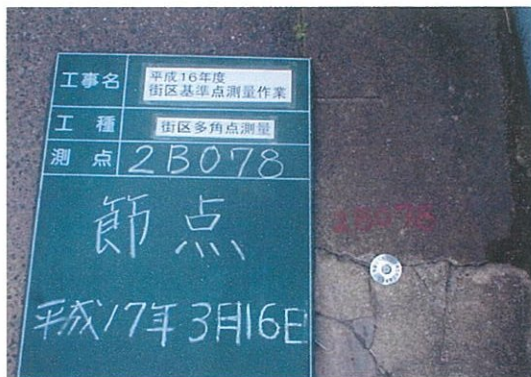 工事名 平成16年度
街区基準点測量作業
工種 街区多角点測量
測点 2B078
節点
平成17年3月16日
2B078